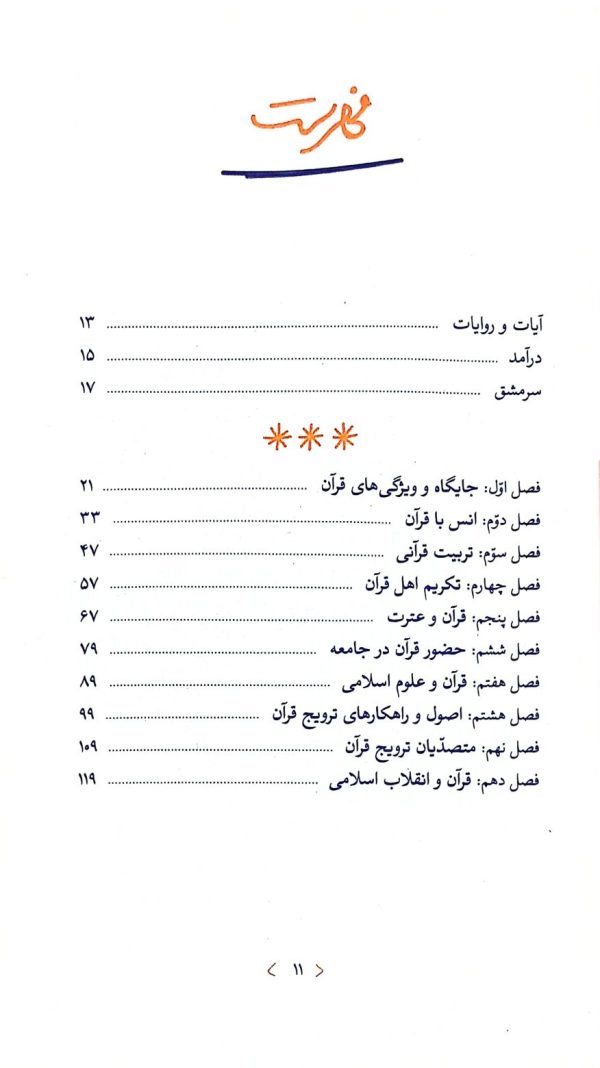 فهرست
آیات و روایات ........ ۱۳
درآمد ........ ۱۵
سرمشق ........ ۱۷
فصل اوّل: جایگاه و ویژگی‌های قرآن ........ ۲۱
فصل دوّم: انس با قرآن ........ ۳۳
فصل سوّم: تربیت قرآنی ........ ۴۷
فصل چهارم: تکریم اهل قرآن ........ ۵۷
فصل پنجم: قرآن و عترت ........ ۶۷
فصل ششم: حضور قرآن در جامعه ........ ۷۹
فصل هفتم: قرآن و علوم اسلامی ........ ۸۹
فصل هشتم: اصول و راهکارهای ترویج قرآن ........ ۹۹
فصل نهم: متصدّیان ترویج قرآن ........ ۱۰۹
فصل دهم: قرآن و انقلاب اسلامی ........ ۱۱۹
۱۱